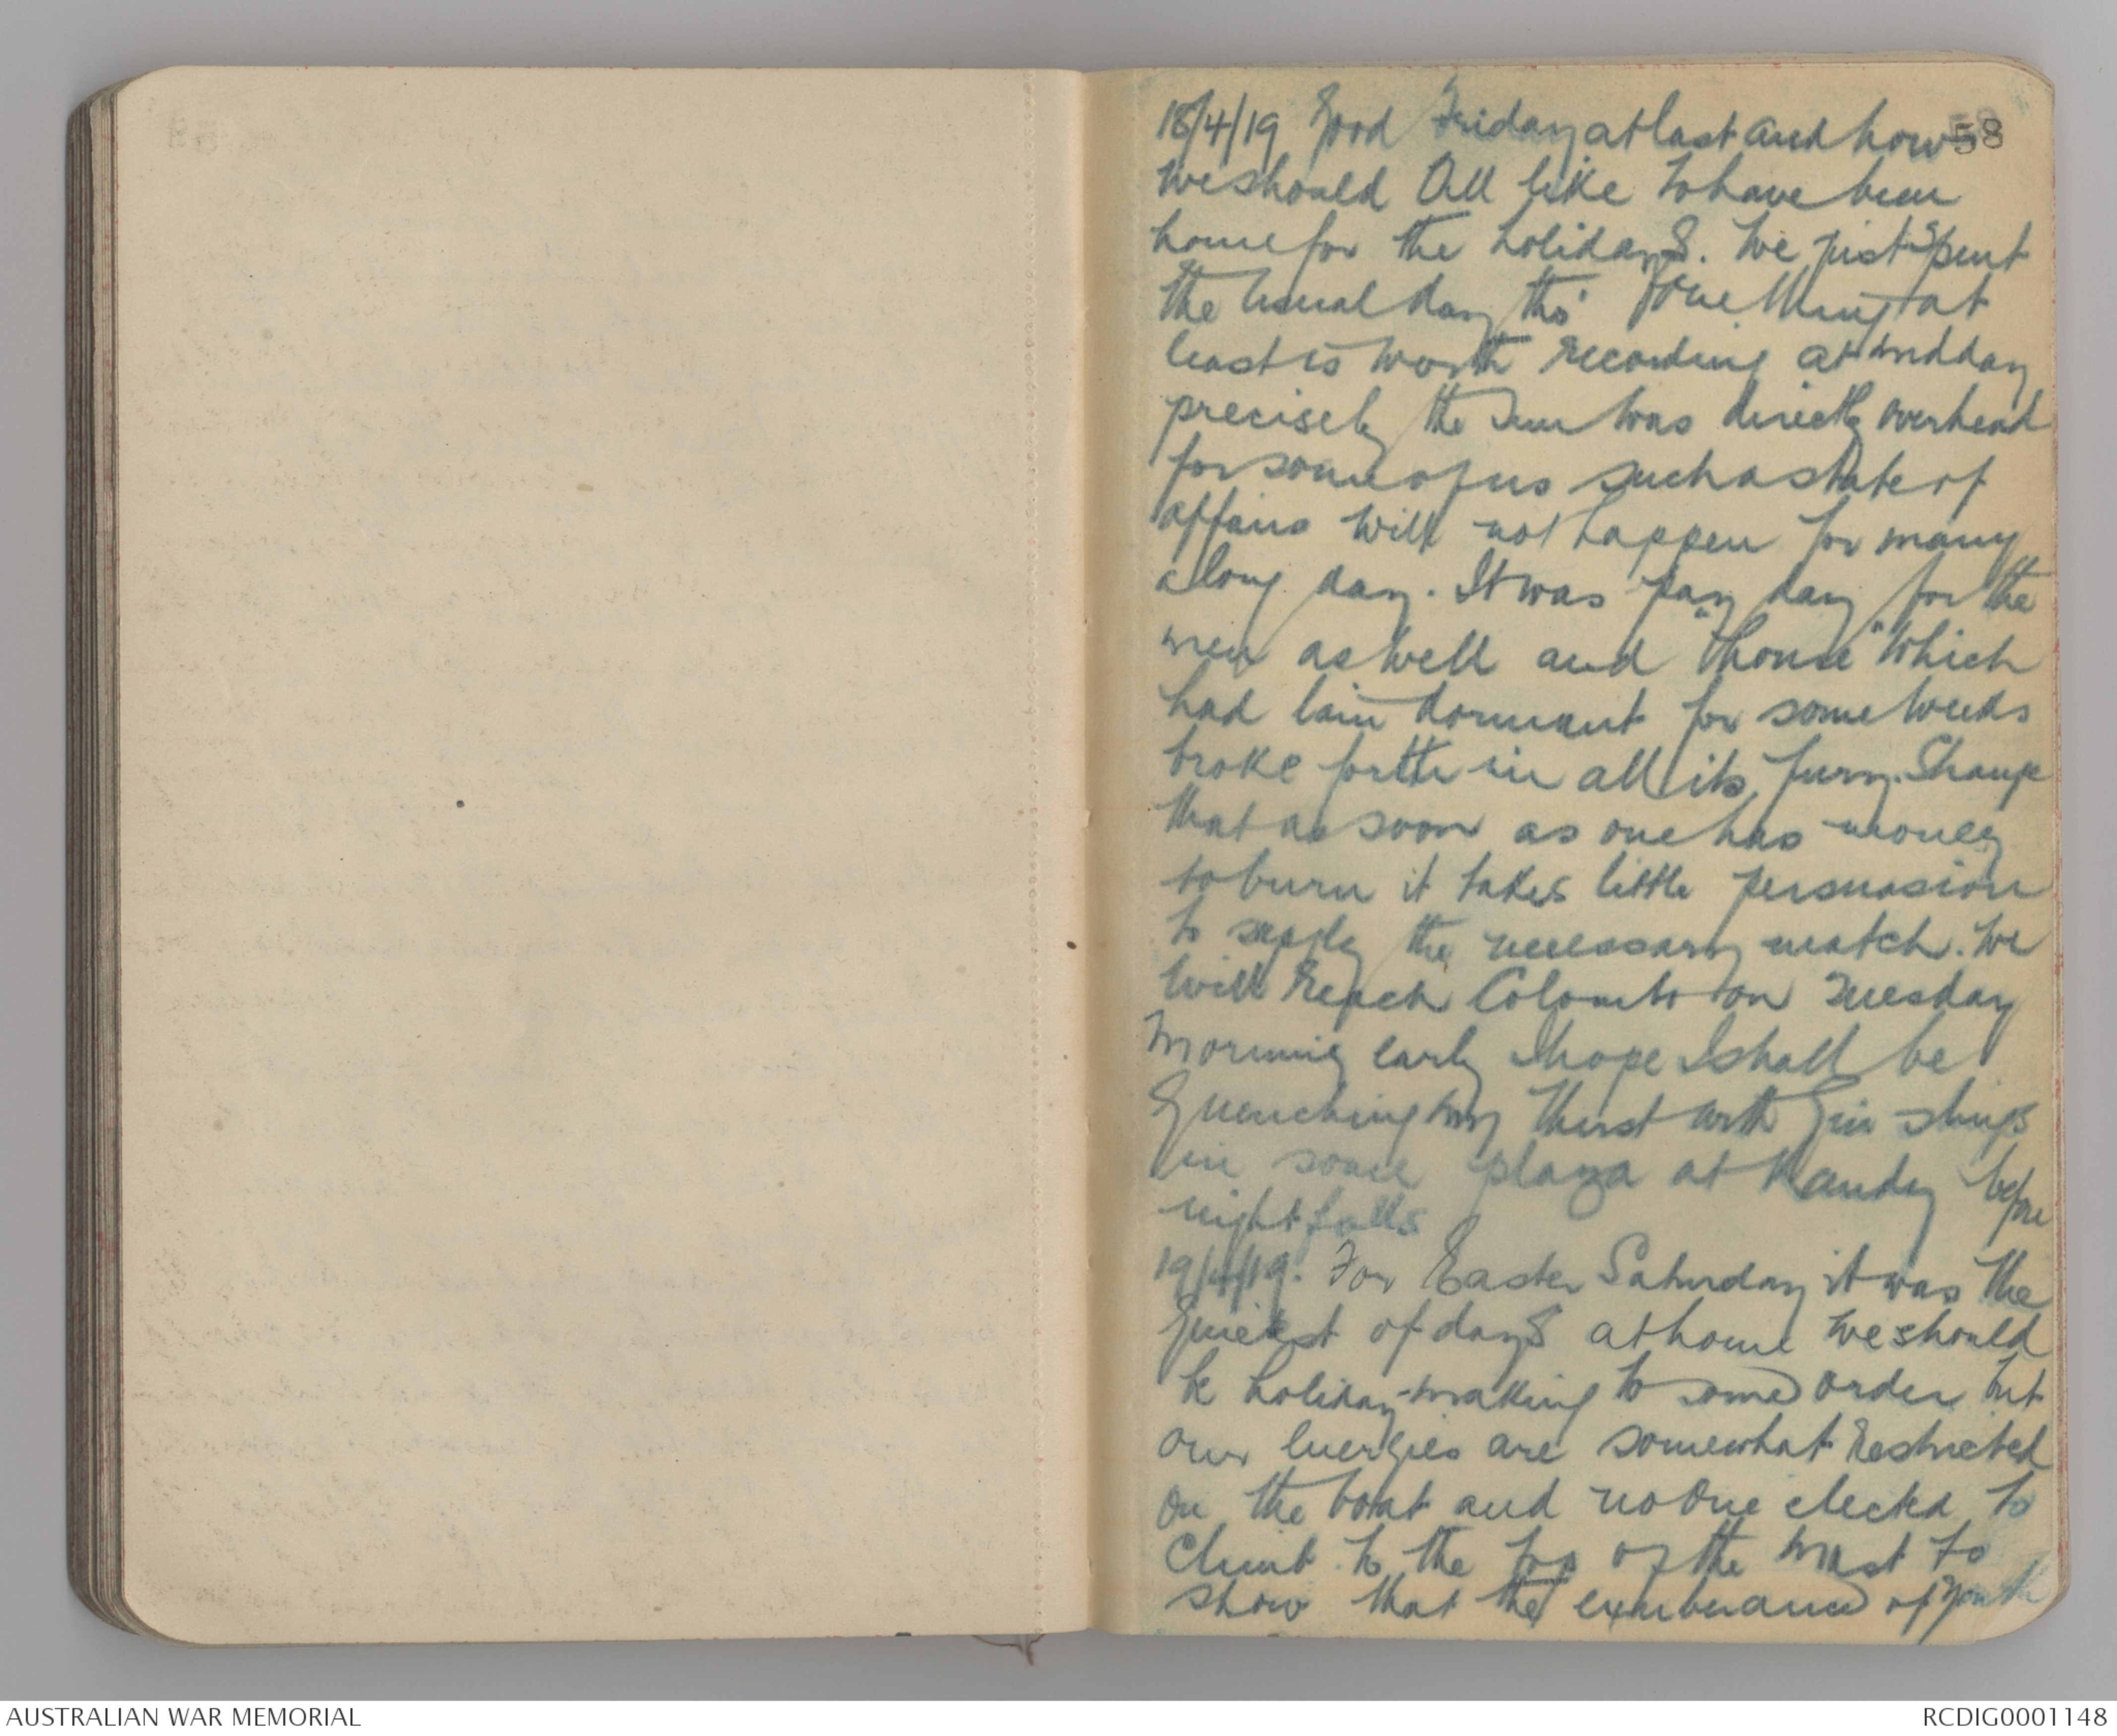 58
18/4/19 Good Friday at last and how
we should All like to have been
home for the holidayS. We just Spent
the usual day tho' One thing at
least is worth recording at midday
precisely the Sun was directly overhead
for some of us such a state of
affairs will not happen for many
a long day. It was pay day for the
men as well and "house" which
had lain dormant for some weeks
broke forth in all its fury. Strange
that as soon as one has money
to burn it takes little persuasion
to supply the necessary match. We
will reach Colombo on Tuesday
morning early I hope I shall be
Quenching my thirst with Gin slings
in some plaza at Kandy before
night falls
19/4/19. For Easter Saturday it was the
Quietest of dayS at home we should
be holiday-making to some order but
our energies are somewhat restricted
on the boat and no one elected to
climb to the top of the mast to
show that the exuberance of youth
AUSTRALIAN WAR MEMORIAL
RCDIG0001148